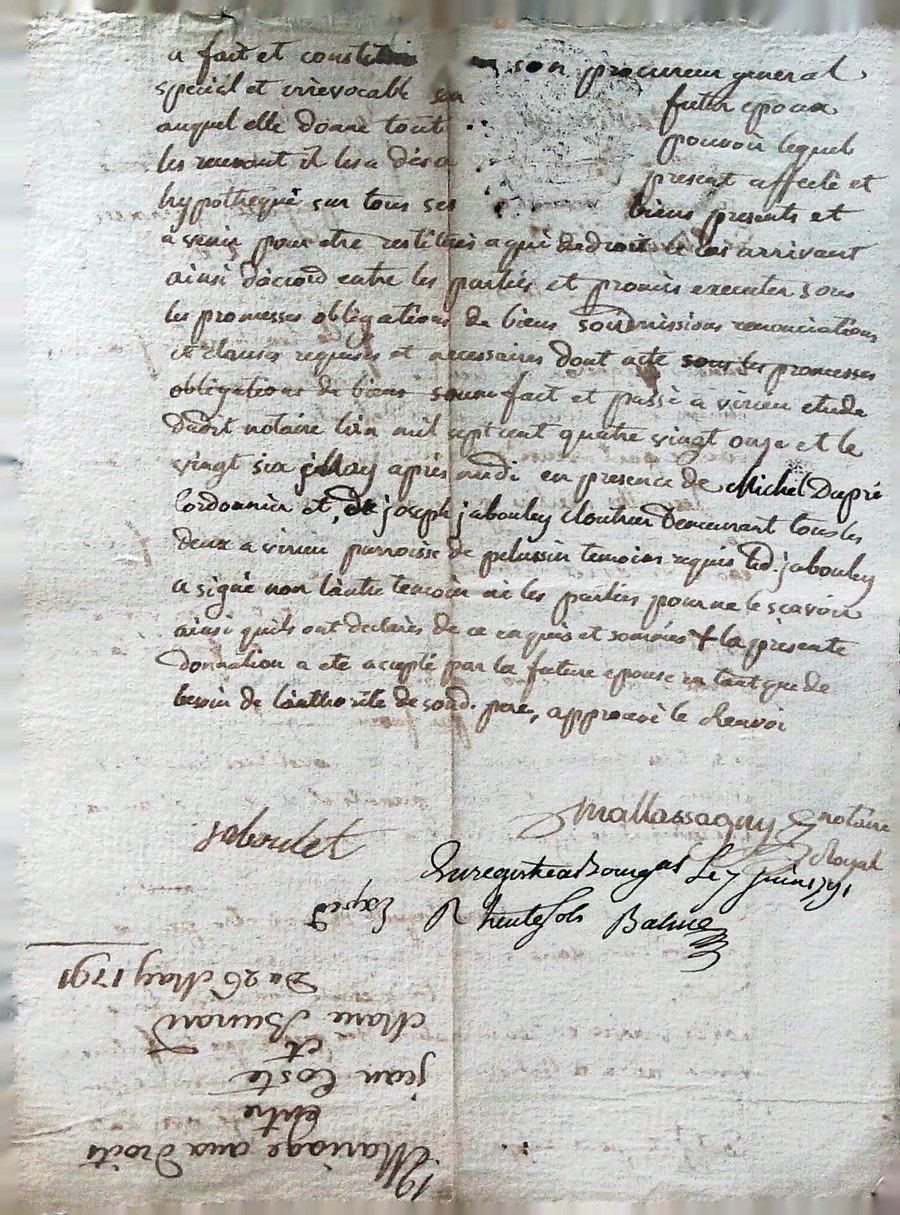 a fait et constitué son procureur general
special et irrevocable son futur epoux
auquel elle donne tout pouvoir lequel
les recevant il les a dès a present affecté et
hypotheque sur tous ses biens presents et
a venir pour etre restitués a qui de droit le cas arrivant
ainsi d'acord entre les parties et promis executer sous
les promesses obligations de biens soudmissions renonciations
et clauses requises et necessaires dont acte sous les promesses
obligations de biens soum fait et passé a virieu etude
dudit notaire l'an mil sept cent quatre vingt onze et le
vingt six May après midi en presence de Michel Dupré
Cordonnier et de joseph jabouley cloutier demeurant tous les
deux a virieu parroisse de pelussin temoins requis led. jabouley
a signé non l'autre temoin ni les parties pour ne le scavoir
ainsi quils ont declarés de ce enquis et sommés + la presente
donnation a eté accepté par la future epouse en tant que de
besoin de l'authorité de sond. pere, approuvé le renvoi
jaboulet
Mallassagny notaire
Royal
Enregistré a Bourgat Le 7 Juin 1791
R trente sols Balme
Expedé
19
Mariage aux droits
entre
jean Coste
et
Marie Bunard
Du 26 May 1791